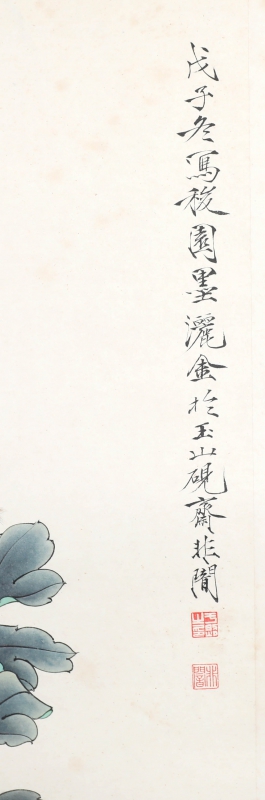 戊子冬寫稷園墨灑金於玉山硯齋非闇